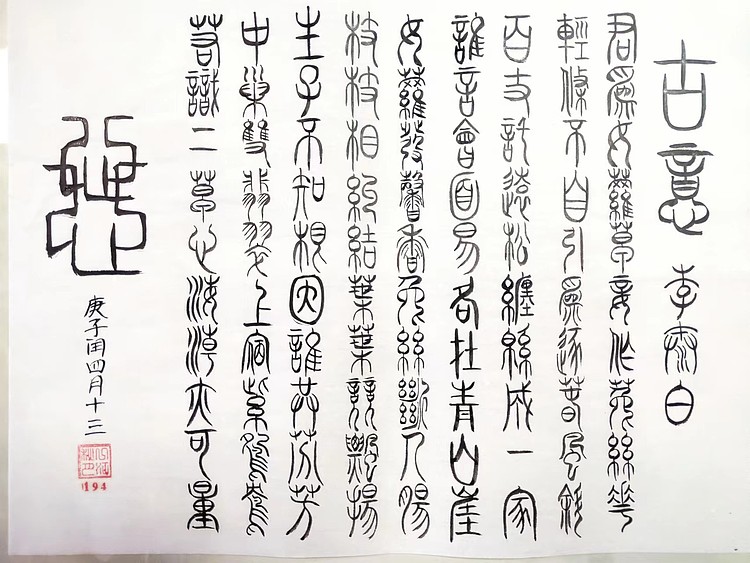 古意 李泰白
君為女蘿草妾作菟絲花
輕條不自引為逐春風斜
百丈託遠松纏緜成一家
誰言會面易各在青山崖
女蘿發馨香兔絲斷人腸
枝枝相糾結葉葉競飄揚
生子不知根因誰共芬芳
中巢雙翡翠上宿紫鴛鴦
若識二草心海潮亦可量
庚子閏四月十三
194